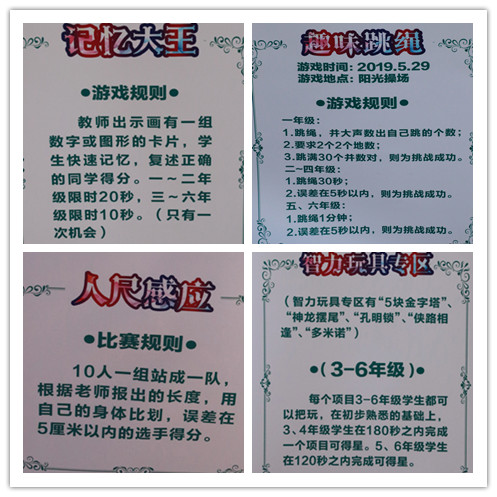 记忆大王
●游戏规则●
教师出示画有一组
数字或图形的卡片，学
生快速记忆，复述正确
的同学得分。一～二年
级限时20秒，三～六年
级限时10秒。（只有一
次机会）
趣味跳绳
游戏时间：2019.5.29
游戏地点：阳光操场
●游戏规则●
一年级：
1.跳绳，并大声数出自己跳的个数；
2.要求2个2个地数；
3.跳满30个并数对，则为挑战成功。
二~四年级：
1.跳绳30秒；
2.误差在5秒以内，则为挑战成功。
五、六年级：
1.跳绳1分钟；
2.误差在5秒以内，则为挑战成功。
人尺感应
●比赛规则●
10人一组站成一队，
根据老师报出的长度，用
自己的身体比划，误差在
5厘米以内的选手得分。
智力玩具专区
（智力玩具专区有“5块金字塔”、
“神龙摆尾”、“孔明锁”、“狭路相
逢”、“多米诺”）
●（3-6年级）●
每个项目3-6年级学生都可
以把玩，在初步熟悉的基础上，
3、4年级学生在180秒之内完成
一个项目可得星。5、6年级学生
在120秒之内完成可得星。